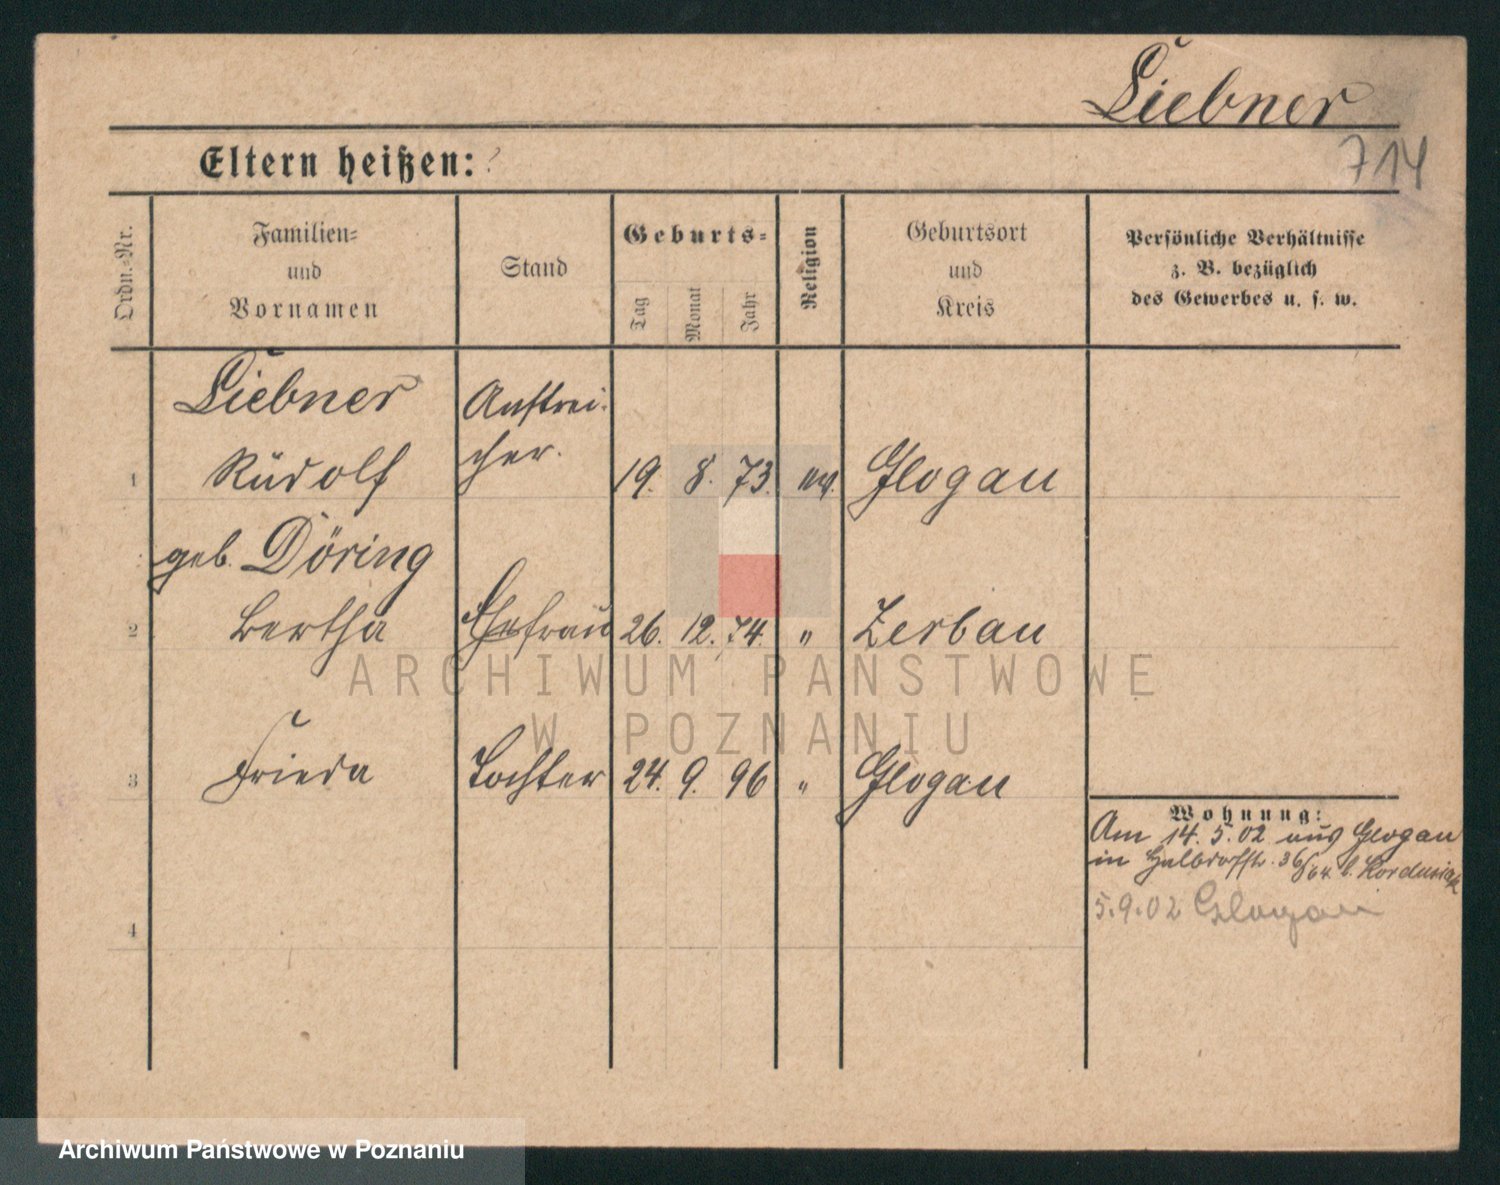 Liebner
714
Eltern heißen: ?
Ordn.-Nr.
Familien-
und
Vornamen
Stand
Geburts-
Tag
Monat
Jahr
Religion
Geburtsort
und
Kreis
Persönliche Verhältnisse
z. B. bezüglich
des Gewerbes u. s. w.
Liebner Anstrei-
cher.
1 Rudolf 19. 8. 73. ev. Glogau
geb. Döring
2 Bertha Ehefrau 26. 12. 74. " Zerbau
ARCHIWUM PAŃSTWOWE
W POZNANIU
3 Frieda Tochter 24. 9. 96 " Glogau
Wohnung:
Am 14. 5. 02 aus Glogau
in 36/64 b. Kordusiak
5.9.02 Glogau
4
Archiwum Państwowe w Poznaniu